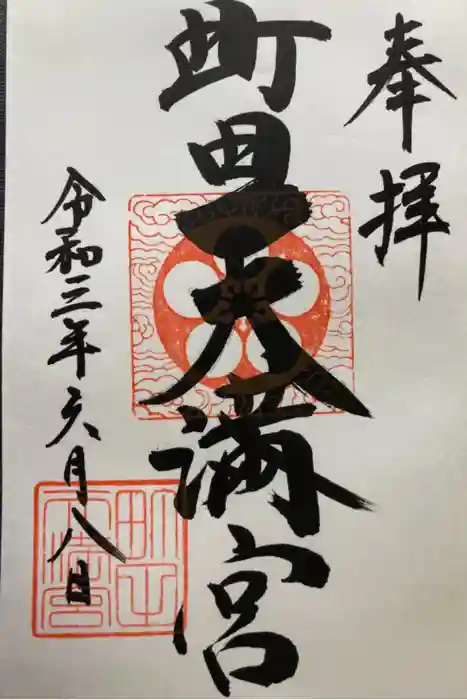 奉拝
町田天満宮
令和三年六月八日
町田天満宮